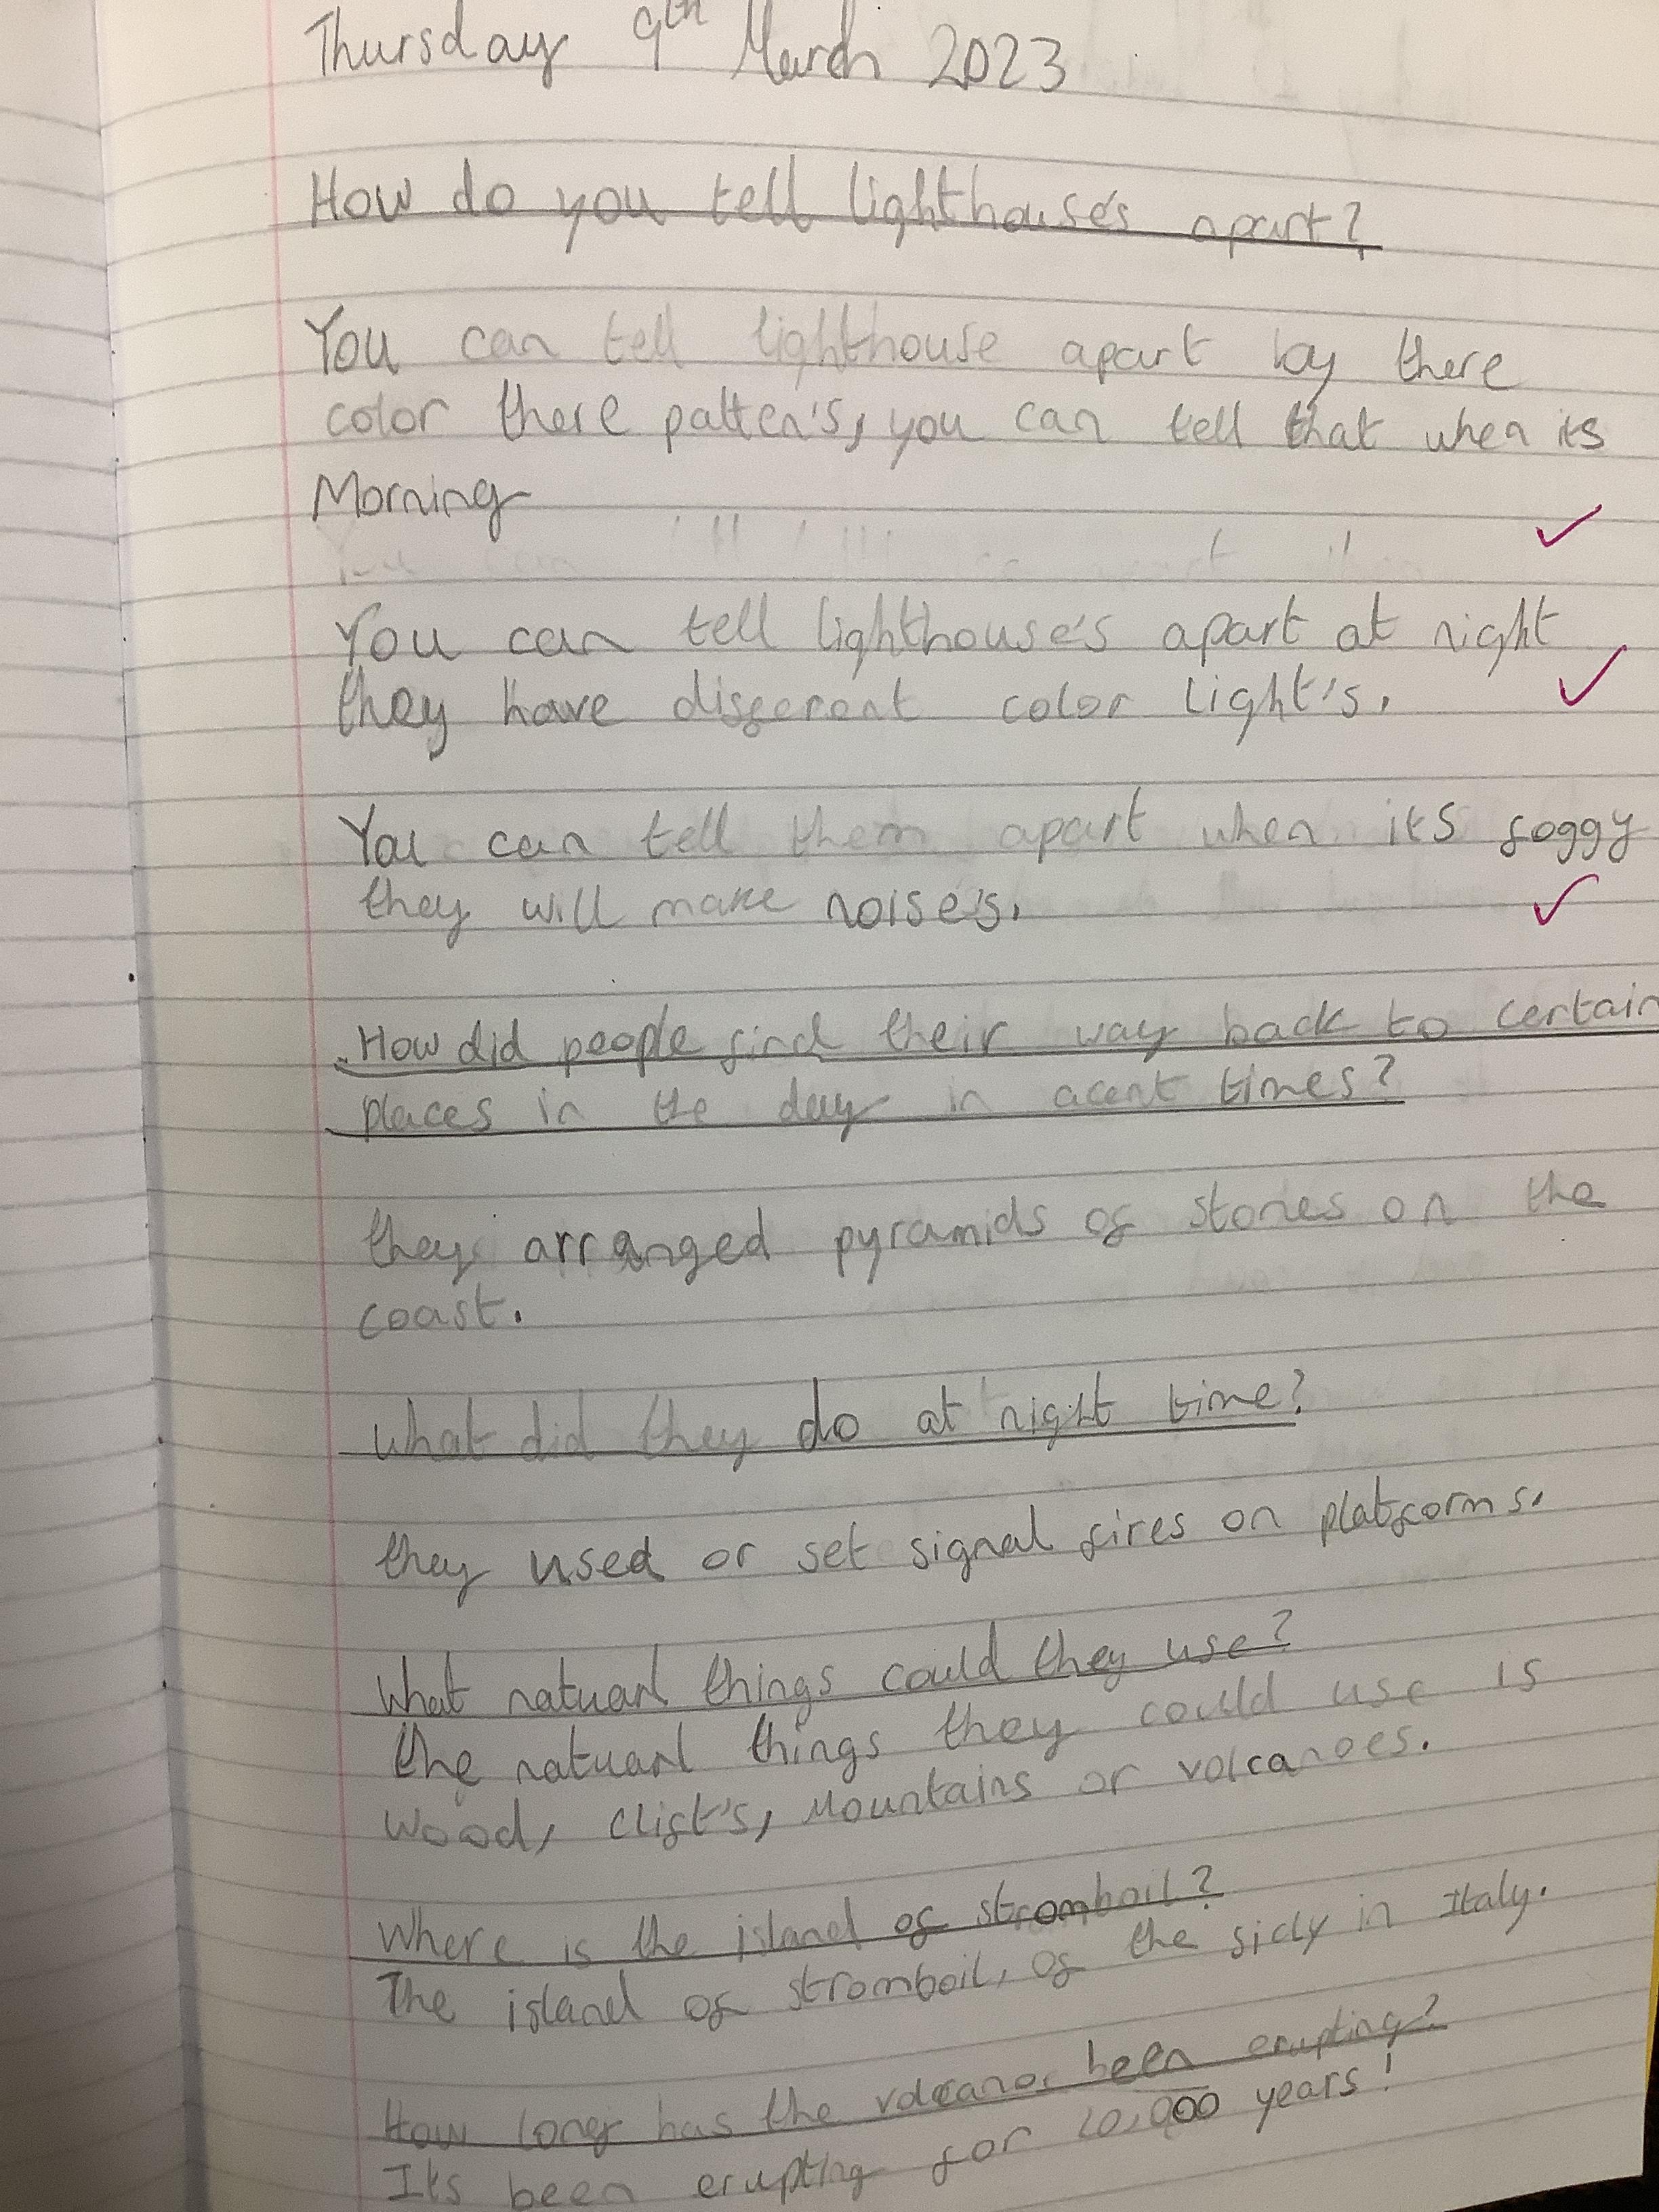 Thursday 9th March 2023
How do you tell lighthouse's apart?
You can tell lighthouse apart by there
color there patten's, you can tell that when its
Morning
You can tell lighthouse's apart at night
they have different color light's.
You can tell them apart when its foggy
they will make noise's.
How did people find their way back to certain
places in the day in acent times?
they arranged pyramids of stones on the
coast.
What did they do at night time?
they used or set signal fires on platforms.
What natuarl things could they use?
the natuarl things they could use is
wood, clift's, Mountains or volcanoes.
Where is the island of stromboil?
The island of stromboil, of the sicly in Italy.
How long has the volcano been erupting?
Its been erupting for 20,000 years!